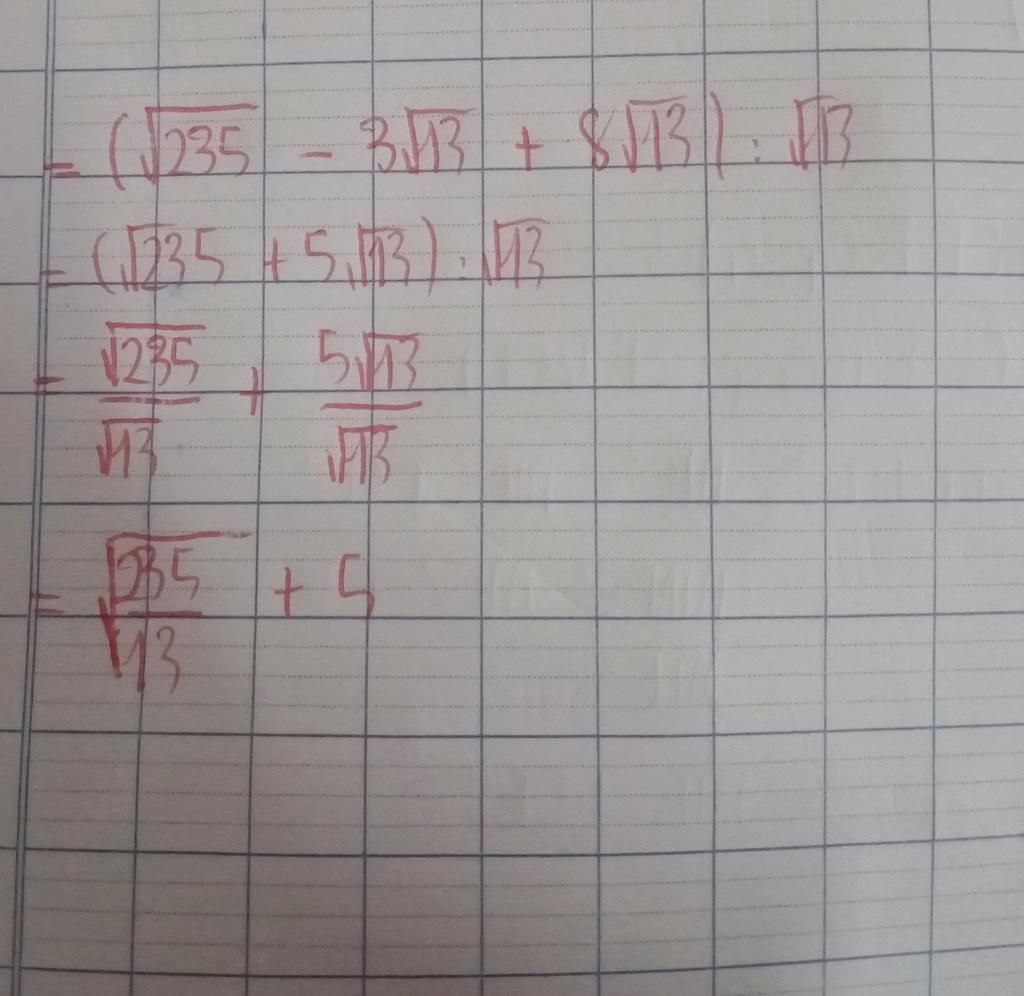 = (√235 - 3√13 + 8√13) : √13
= (√235 + 5√13) : √13
= √235/√13 + 5√13/√13
= √(235/13) + 5